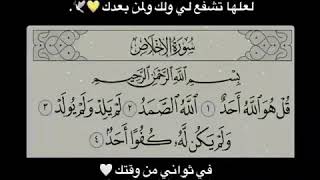 لعلها تشفع لي ولك ولمن بعدك 💛🕊.
سُورَةُ الإِخْلَاصِ
بِسْمِ اللَّهِ الرَّحْمَٰنِ الرَّحِيمِ
قُلْ هُوَ اللَّهُ أَحَدٌ ١ اللَّهُ الصَّمَدُ ٢ لَمْ يَلِدْ وَلَمْ يُولَدْ ٣
وَلَمْ يَكُن لَّهُ كُفُوًا أَحَدٌ ٤
في ثواني من وقتك 🤍